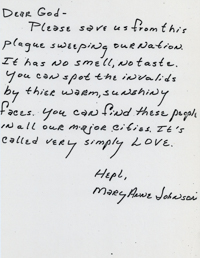 Dear God-
Please save us from this
plague sweeping our nation.
It has no smell, no taste.
You can spot the invalids
by thier warm, sunshiny
faces. You can find these people
in all our major cities. It's
called very simply LOVE.
Hepl,
Mary Anne Johnson